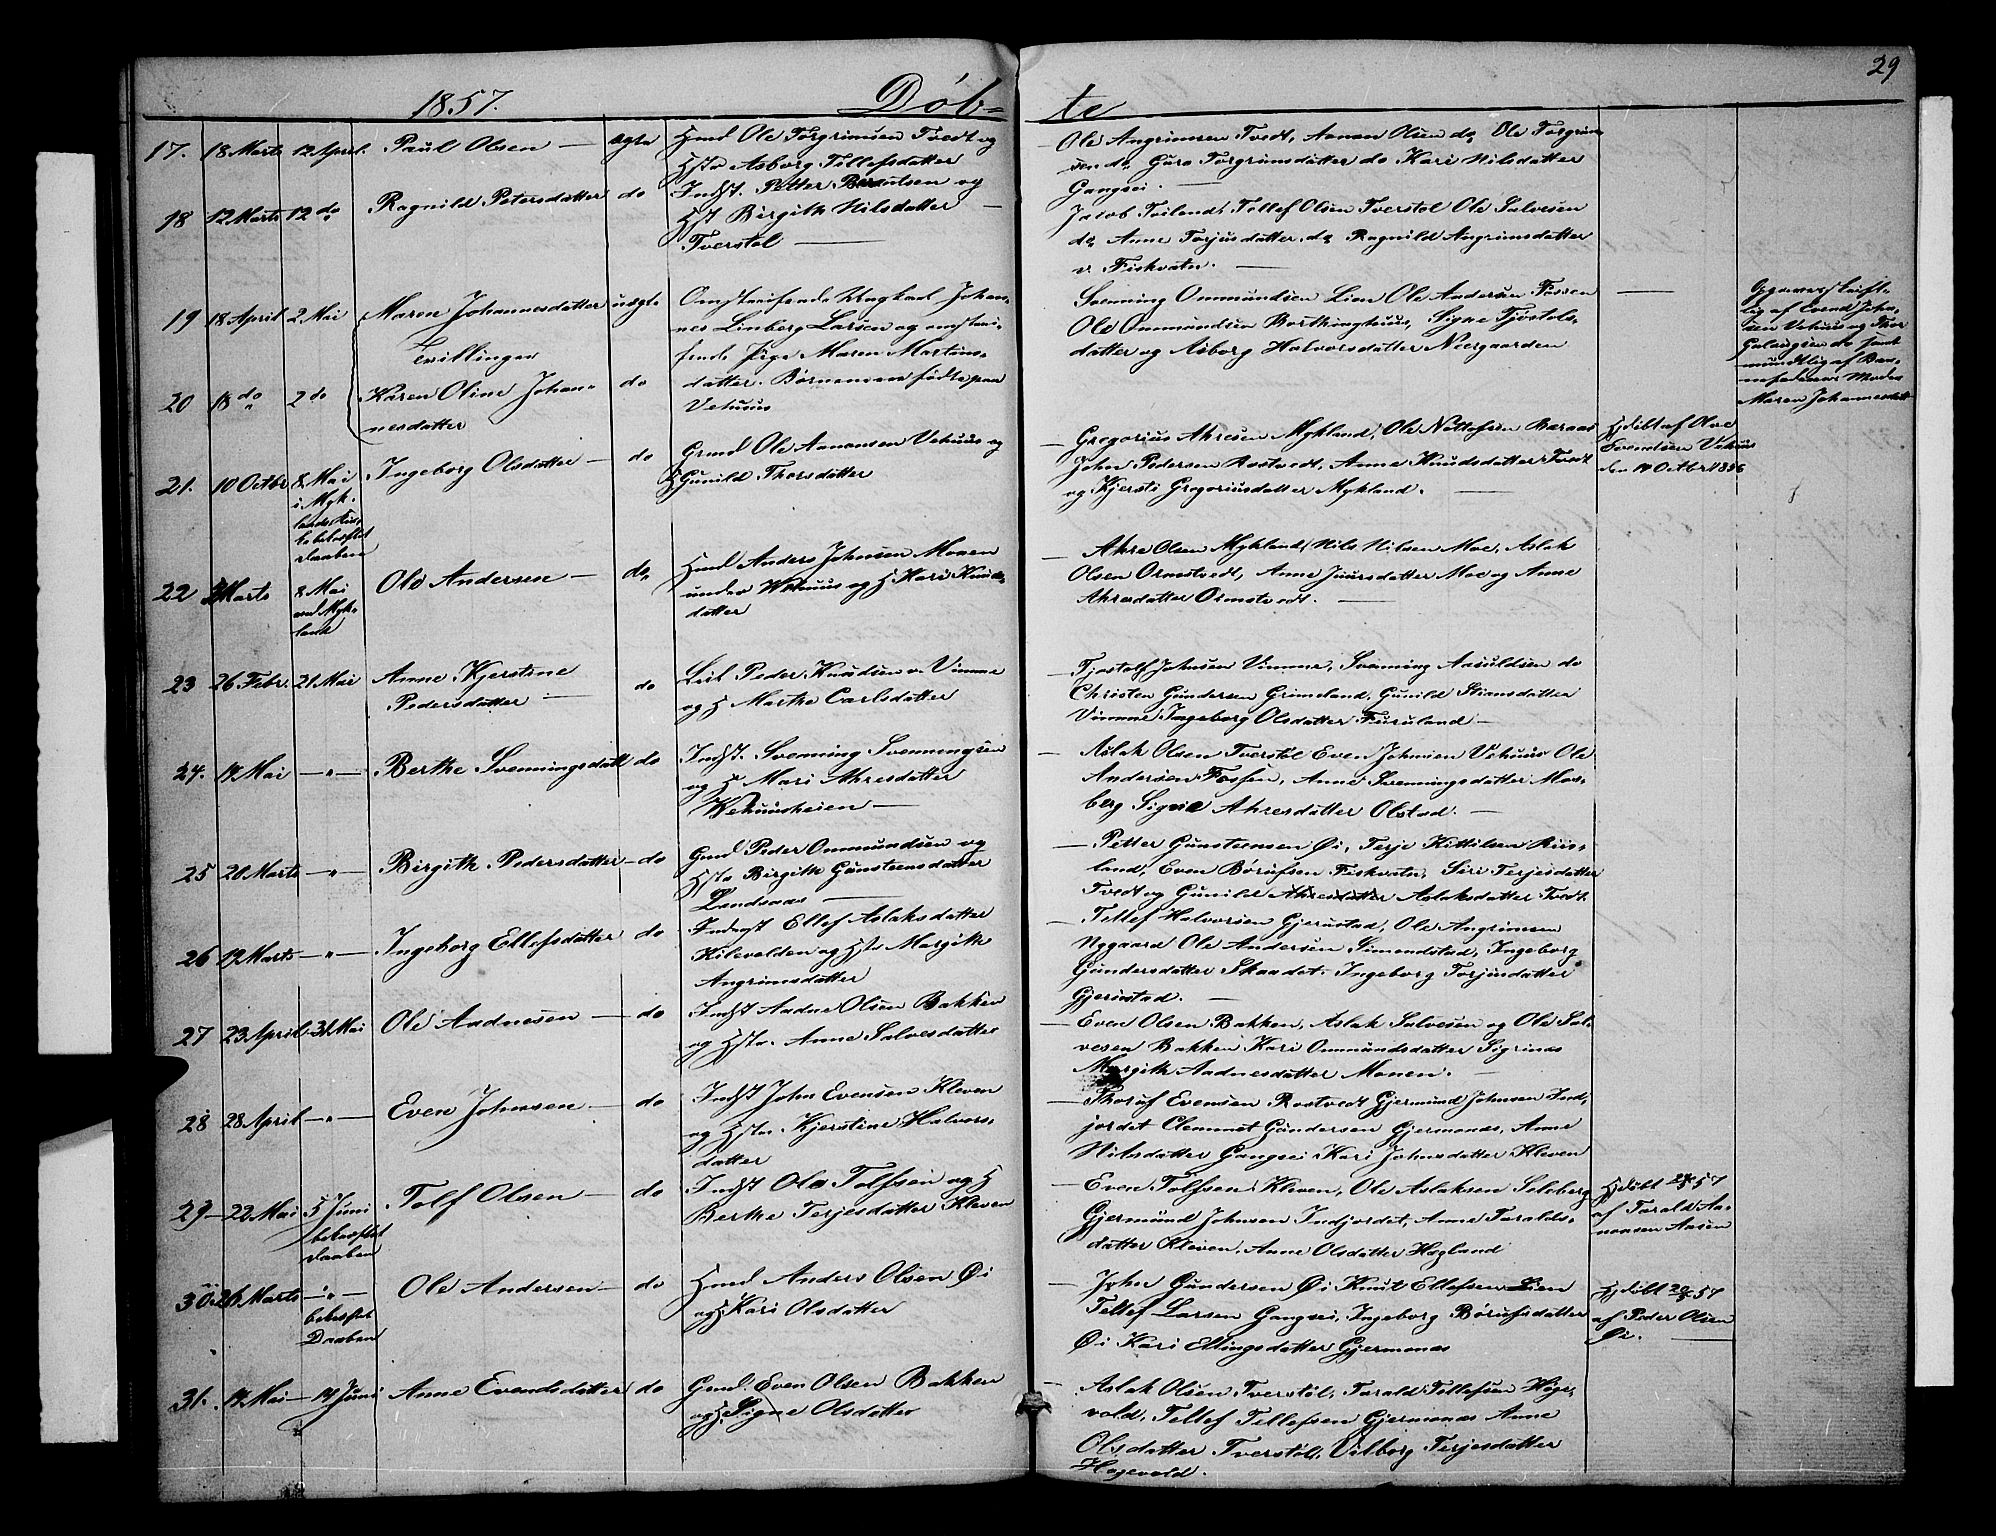 29
1857. Døb= te
17. 18 Marts 12 April. Paul Olsen — ægte Hmd Ole Torgrimsen Tvedt og
Hsta Asborg Tellefsdatter
Ole Angrimsen Tvedt, Aanon Olsen do, Ole Torgrim
sen do, Guro Torgrimsdatter do Kari Nilsdatter
Gangsei. —
18 12 Marts 12 do Ragnild Petersdatter do Indst. Petter Berntsen og
Hst Birgith Nilsdatter —
Tverstøl —
Jacob Tveiland, Tellef Olsen Tverstøl Ole Salvesen
do, Anne Torjusdatter do, Ragnild Angrimsdatter
v. Fiskvatn. —
19 18 April 2 Mai Maren Johannesdatter uægte
Tvillinger
Omstreifende Ungkarl Johan-
nes Linberg Larsen og omstrei-
fende Pige Maren Martins-
datter. Børnene ere fødte paa
Vehuus
Svenning Ommundsen Lien Ole Andersen Fossen
Ole Ommundsen Borthinghuus, Signe Tjostols-
datter og Asborg Halvorsdatter Neergaarden
20 18 do 2 do Karen Oline Johan-
nesdatter do
21. 10 Octbr 8 Mai
i Myk-
lands Kir-
ke bekræftet
Daaben
Ingeborg Olsdatter — do Grmd Ole Aanonsen Vehuus og
H Gunild Thorsdatter
— Gregorius Ahresen Mykland, Ole Nottolfsen Baraas
John Pedersen Rostvedt, Anne Knudsdatter Tvedt
og Kjersti Gregoriusdatter Mykland. —
Hjdøbt af Olve
Evendsen Vehuus
den 14 Octbr 1856
22 Marts 8 Mai
ved Myk-
land
Ole Andersen — do, Hmd Anders Johnsen Monen
under Vehuus og H. Kari Knuds-
datter
— Ahre Olsen Mykland, Nils Nilsen Moe, Aslak
Olsen Ormstvedt, Anne Juursdatter Moe og Anne
Ahresdatter Ormstvedt. —
23 26 Febr. 21 Mai Anne Kjerstine
Pedersdatter — do
Leil Peder Knudsen v. Vimme
og H Marthe Carlsdatter
— Tjostolf Johnsen Vimme, Svenning Aasuldsen do
Christen Gundersen Grimeland, Gunild Stiansdatter
Vimme Ingeborg Olsdatter Furuland —
24. 14 Mai —"— Berthe Svenningsdatt do Indst. Svenning Svenningsen
og H Mari Ahresdatter
Vehuusheien —
— Aslak Olsen Tverstøl Even Johnsen Vehuus Ole
Andersen Fossen, Anne Svenningsdatter Mos-
berg Signe Ahresdatter Olstad. —
25 20 Marts —"— Birgith Pedersdatter — do Gmd Peder Ommundsen og
Hsta Birgith Gunsteensdatter
Landsaas —
— Petter Gunsteensen Øi, Terje Kittilsen Riis-
land, Even Børufsen Fiskvatn, Siri Terjesdatter
Tvedt og Gunild Ahresdatter Aslaksdatter Tvedt.
26 19 Marts —"— Ingeborg Ellefsdatter do Indrst Ellef Aslaksdatter
Kilevolden og Hsta Margith
Angrimsdatter
— Tellef Halvorsen Gjerustad, Ole Angrimsen
Nygaard Ole Andersen Simonstad, Ingeborg
Gundersdatter Skaadet, Ingeborg Torjusdatter
Gjerustad. —
27 23 April 31 Mai Ole Aadnesen — do Indst Aadne Olsen Bakken
og Hsta. Anne Salvesdatter
— Even Olsen Bakken, Aslak Salvesen og Ole Sal-
vesen Bakken Kari Ommundsdatter Sigrinaes
Margith Aadnesdatter Monen. —
28 28 April —"— Even Johnsen — do Indst John Evensen Kleven
og Hsta. Kjerstine Halvors-
datter
— Thoruf Evensen Rostvedt Gjermund Johnsen Ind-
jordet Clemmet Gundersen Gjermones, Anne
Nilsdatter Gangsei Kari Johnsdatter Kleven
29 — 22 Mai 5 Juni
bekræftet
Daaben
Tolf Olsen — do Indst Ole Tolfsen og H
Berthe Terjesdatter Kleven
— Even Tolfsen Kleven, Ole Aslaksen Seleberg
Gjermund Johnsen Indjordet, Anne Taralds-
datter Kleven, Anne Olsdatter Høgland
Hjdøbt 24/5 57
af Tarald Aa-
nonsen Aasen
30 26 Marts —"—
bekræftet
Daaben
Ole Andersen — do Hmd Anders Olsen Øi
og H Kari Olsdatter
— John Gundersen Øi Knut Ellefsen Lien
Tellef Larsen Gangsei, Ingeborg Børufsdatter
Øi Kari Ellingsdatter Gjermones
Hjdøbt 20/5 57
af Peder Olsen
Øi. —
31. 14 Mai — 14 Juni Anne Evendsdatter do Gmd. Even Olsen Bakken
og H. Signe Olsdatter
— Aslak Olsen Tverstøl, Tarald Tellefsen Høge-
vold, Tellef Tellefsen Gjermones Anne
Olsdatter Tverstøl, Vilborg Terjesdatter
Høgevold.